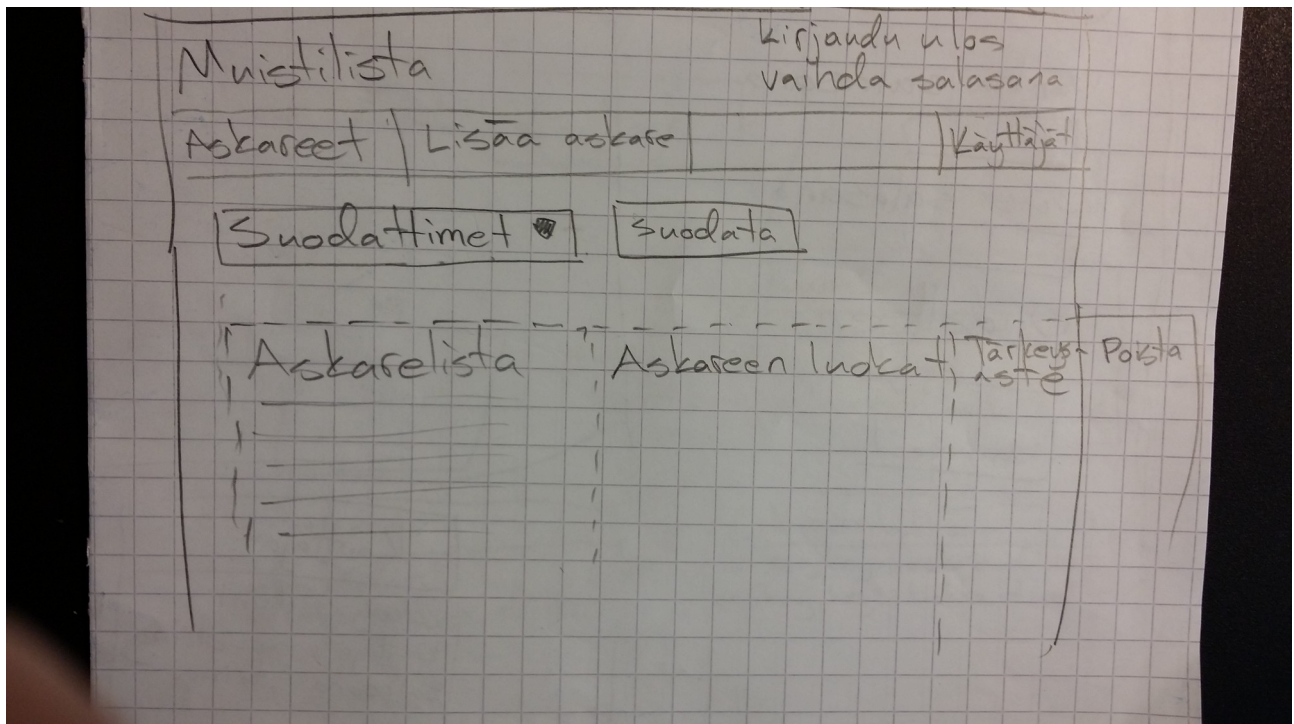 Muistilista
Kirjaudu ulos
vaihda salasana
Askareet Lisää askare Käyttäjät
Suodattimet Suodata
Askarelista Askareen luokat Tärkeys- Poista
aste